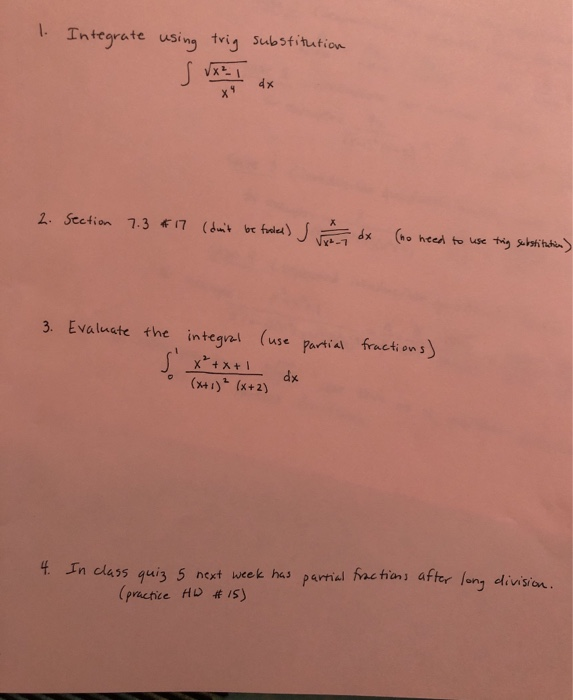 1. Integrate using trig substitution
∫ √(x²-1) / x⁴ dx
2. Section 7.3 #17 (don't be fooled) ∫ x / √(x²-7) dx (no need to use trig substitution)
3. Evaluate the integral (use partial fractions)
∫₀¹ (x²+x+1) / ((x+1)² (x+2)) dx
4. In class quiz 5 next week has partial fractions after long division.
(practice HW # 15)